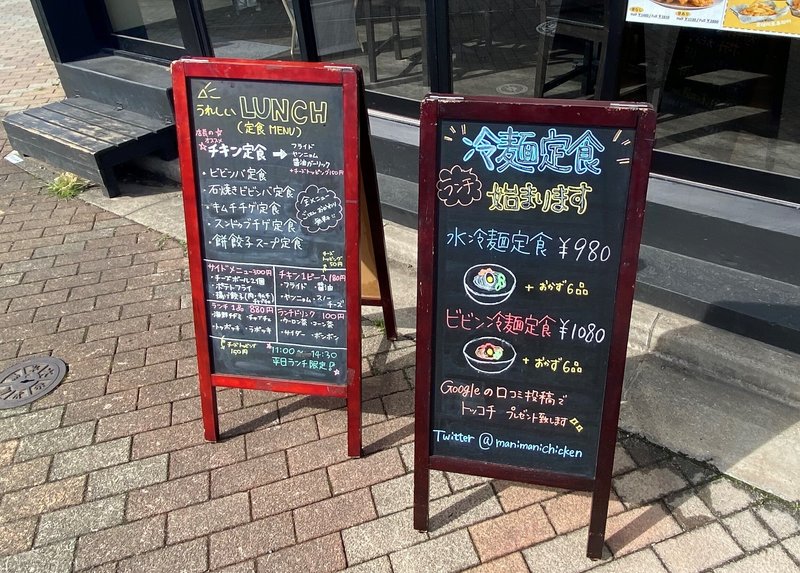 うれしい LUNCH
(定食 MENU)
店員の
オススメ
チキン定食 → フライド
ヤンニョム
醤油ガーリック
+チーズトッピング100円
・ビビンバ定食
・石焼きビビンバ定食
・キムチチゲ定食
・スンドゥブチゲ定食
・餅餃子スープ定食
全メニュー
おかわり
無料!!
チーズ
トッピング
サイドメニュー300円
・チーズボール2個
・ポテトフライ
チキン1ピース 180円
・フライド ・醤油
・ヤンニョム ・スノー
チーズ
ランチ1品 880円
・海鮮チヂミ ・チャプチェ
・トッポッキ ・ラポッキ
チーズトッピング
150円
ランチドリンク 100円
・ウーロン茶 ・コーン茶
・サイダー ・ポンポン
11:00〜14:30
平日ランチ限定
冷麺定食
ランチ
始まります
水冷麺定食 ¥980
+おかず6品
ビビン冷麺定食 ¥1080
+おかず6品
Googleの口コミ投稿で
トッコチ プレゼント致します
Twitter @manimanichicken